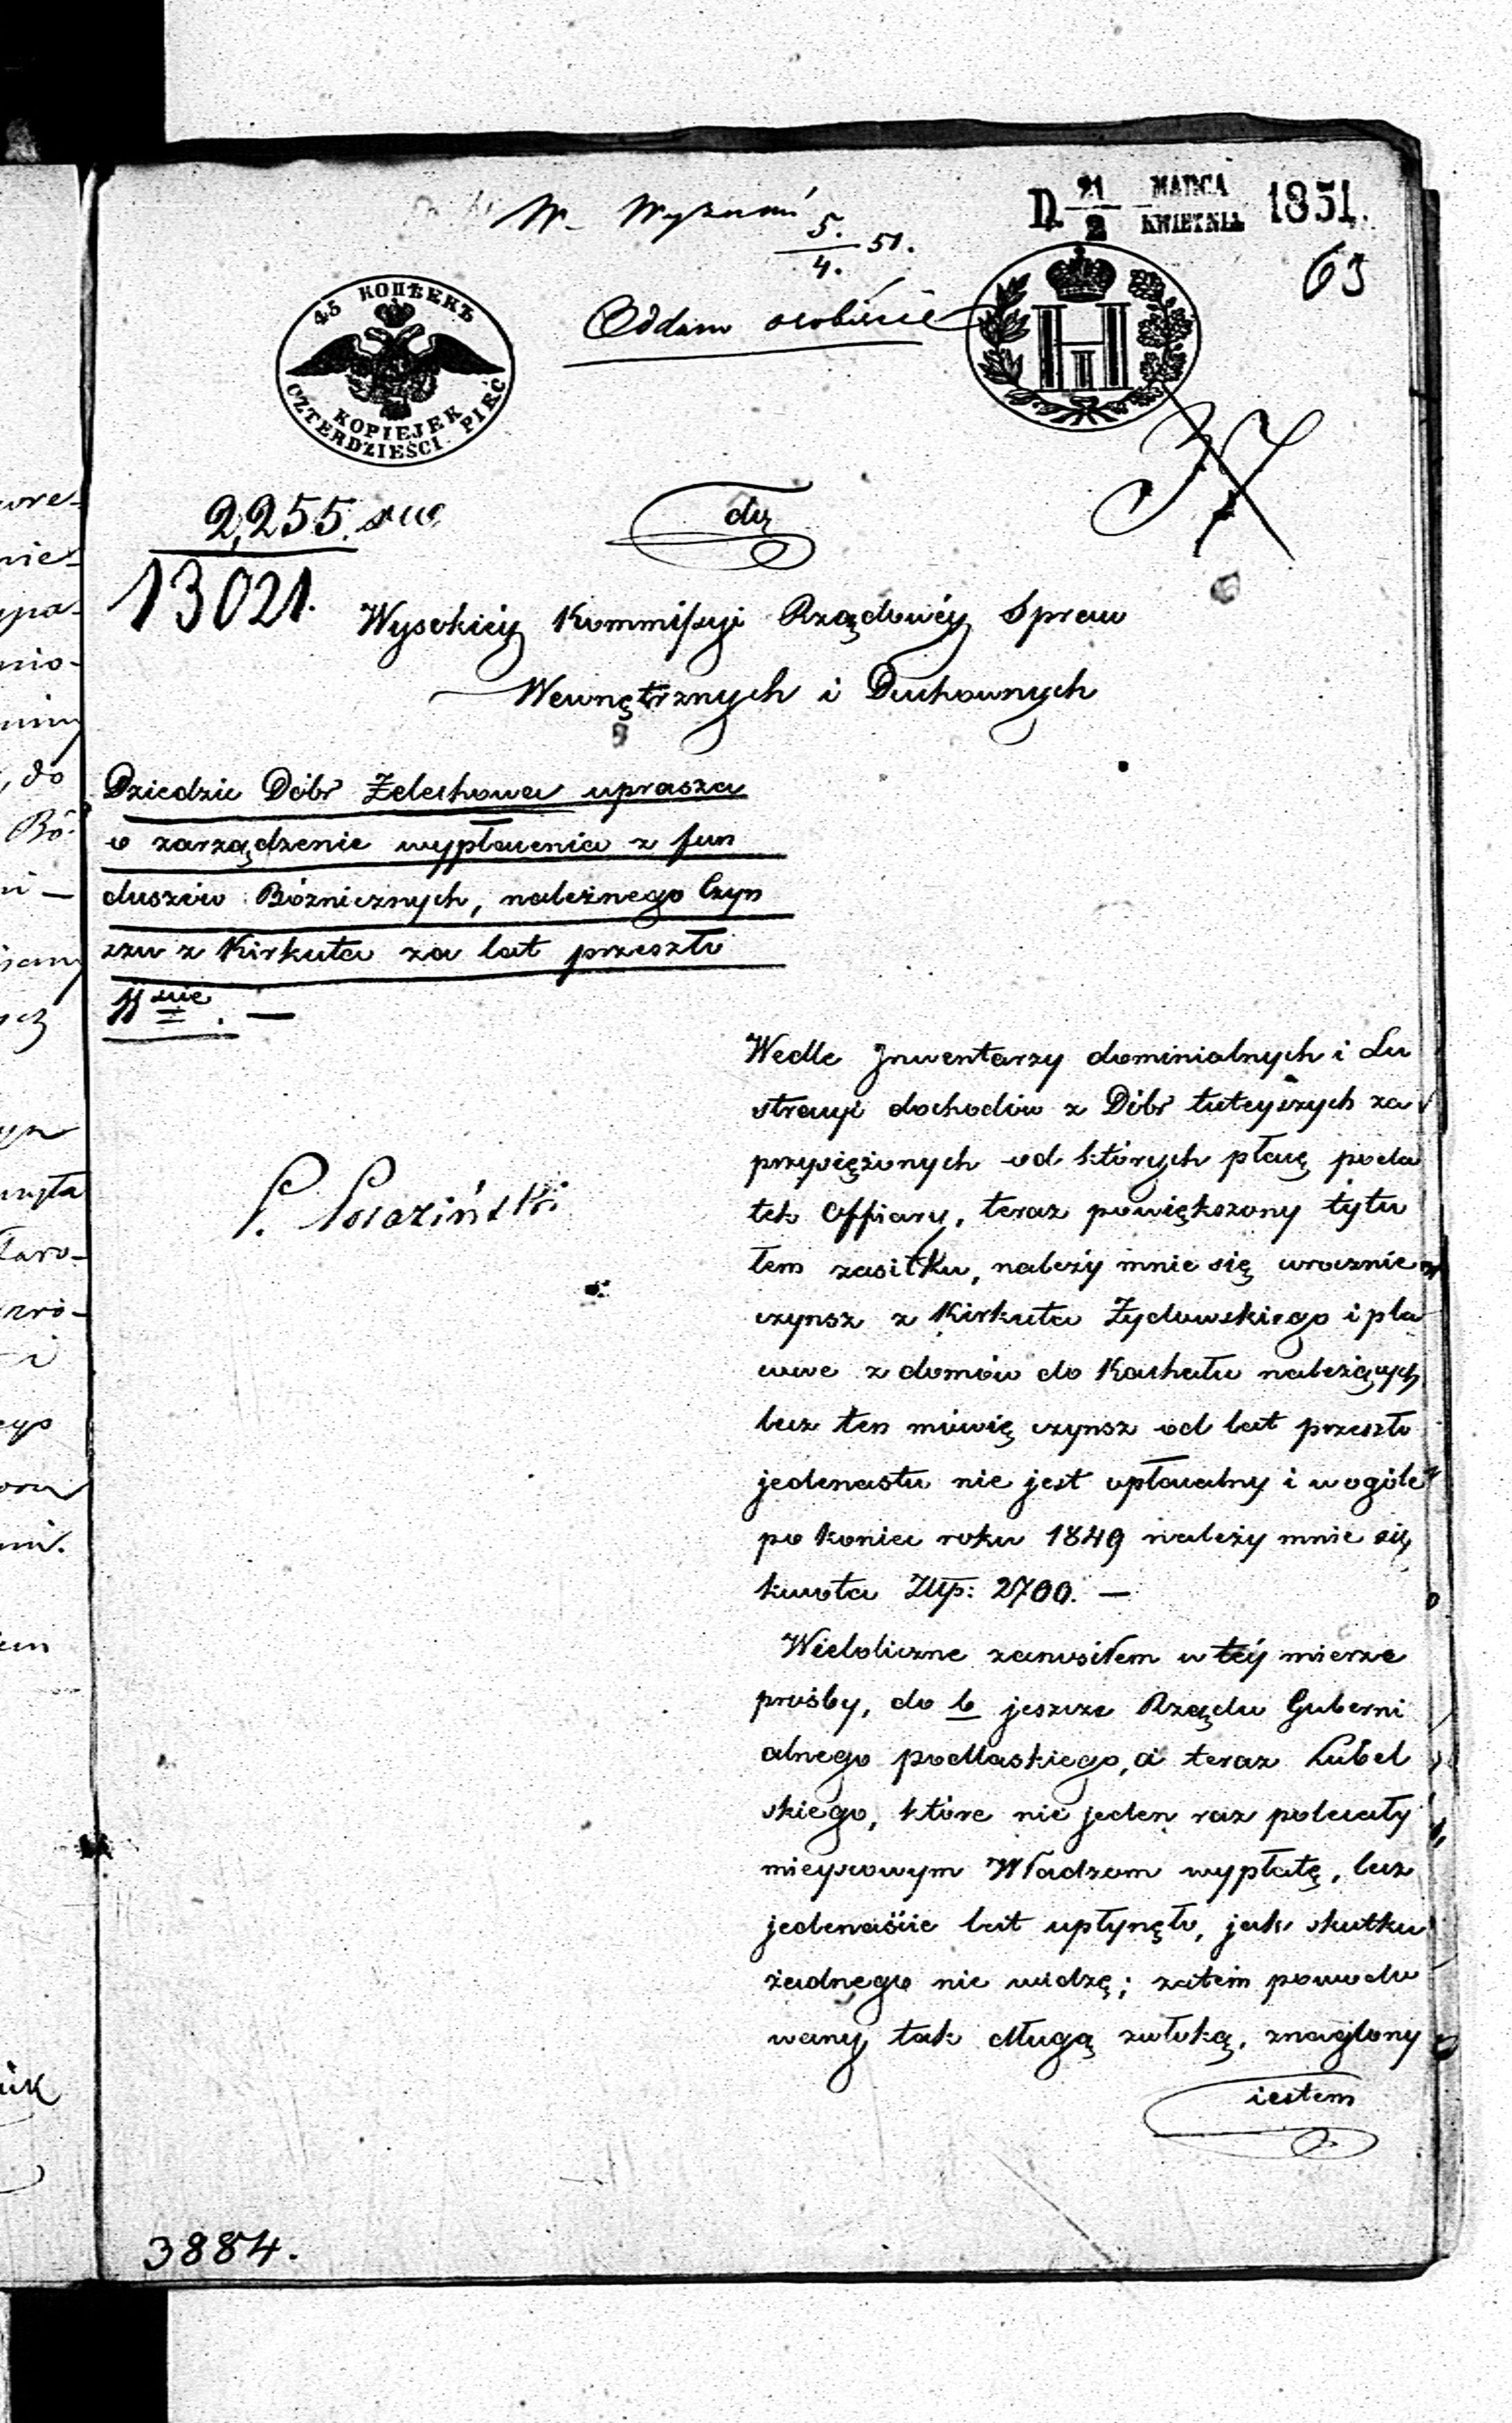 W. Wyznań
D. 21/2 MARCA/KWIETNIA 1851.
5./4. 51.
63
45 КОПѢЕКЪ
KOPIEJEK
CZTERDZIEŚCI PIĘĆ
Oddano osobiście
2,255.
13021.
do
Wysokiéy Kommissyi Rządowéy Spraw
Wewnętrznych i Duchownych
Dziedzic Dóbr Żelechowa uprasza
o zarządzenie wypłacenia z fun
duszów Bóżnicznych, należnego Czyn
szu z Kirkuta za lat przeszło
11ście. —
Wedle Inwentarzy dominialnych i Lu
stracyi dochodów z Dóbr tuteyszych za
przysiężonych od których płacę poda
tek Offiary, teraz powiększony tytu
łem zasiłku, należy mnie się corocznie
czynsz z Kirkuta Żydowskiego i pla
cowe z domów do Kachału należących
lecz ten mówię czynsz od lat przeszło
jedenastu nie jest opłacalny i w ogóle
po koniec roku 1849 należy mnie się
kwota Złp: 2700. —
Wieloliczne zanosiłem w téy mierze
prośby, do b jeszcze Rządu Guberni
alnego podlaskiego, a teraz Lubel
skiego, które nie jeden raz polecały
mieyscowym Władzom wypłatę, lecz
jedenaście lat upłynęło, jak skutku
żadnego nie widzę; zatém powodo
wany tak długą zwłoką, znaglony
iestem
3884.